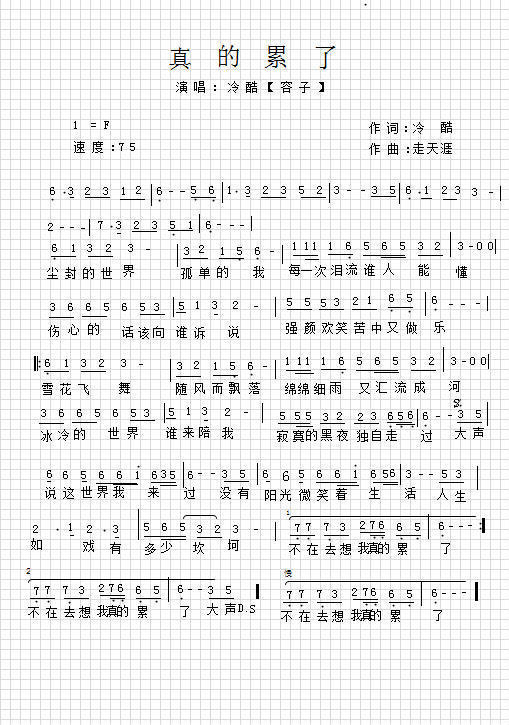 真 的 累 了
演唱：冷酷【容子】
1 = F
作词：冷 酷
速度：75
作曲：走天涯
6 · 3 2 3 1 2 | 6 - - 5 6 | 1 · 3 2 3 5 2 | 3 - - 3 5 | 6 · 1 2 3 3 - |
2 - - - | 7 · 3 2 3 5 1 | 6 - - - |
6 1 3 2 3 - | 3 2 1 5 6 - | 1 11 1 6 5 6 5 3 2 | 3 - 0 0 |
尘封的世界 孤单的 我 每一次泪流谁人 能 懂
3 6 6 5 6 5 3 | 5 1 3 2 - | 5 5 5 3 2 1 6 5 | 6 - - - |
伤心的 话该向 谁诉 说 强颜欢笑苦中又做 乐
6 1 3 2 3 - | 3 2 1 5 6 - | 1 11 1 6 5 6 5 3 2 | 3 - 0 0 |
雪花飞 舞 随风而飘落 绵绵细雨 又汇流成 河
3 6 6 5 6 5 3 | 5 1 3 2 - | 5 55 3 2 2 3 656 | 6 - - 3 5 |
冰冷的 世界 谁来陪我 寂寞的黑夜 独自走 过 大声
6 6 5 6 6 1 6 35 | 6 - - 3 5 | 6 6 5 6 6 1 6 56 | 3 - - 5 3 |
说这世界我 来 过 没有 阳光微笑着 生 活 人生
2 · 1 2 · 3 | 5 6 5 3 2 3 - | 7 7 7 3 2 76 6 5 | 6 - - - :|
如 戏有 多少 坎 坷 不在去想 我真的累 了
2
7 7 7 3 2 76 6 5 | 6 - - 3 5
慢
7 7 7 3 2 76 6 5 | 6 - - -
不在去想 我真的累 了 大声D.S 不在去想 我真的累 了